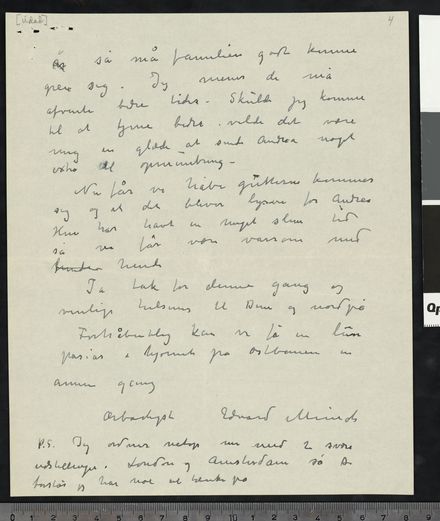 [Udat]
4
så må familien godt kunne
greie sig. Jeg mener de må
afvente bedre tider. Skulde jeg komme
til at tjene bedre vilde det være
mig en glæde at sende Andrea noget
extra til opmuntring –
Nu får vi håbe gutterne kommer
sig og at det bliver lysere for Andrea
Hun har havt en meget slem tid
så vi får være varsom med
hende
Ja tak for denne gang og
venlige hilsener til Dem og
Forhåbentlig kan vi få en liden
på Østbanen en
anden gang
Ærbødigst Edvard Munch
P.S. Jeg ordner netop nu med 2 svære
udstillinger. London og Amsterdam så De
forstår jeg har nok at tænke på